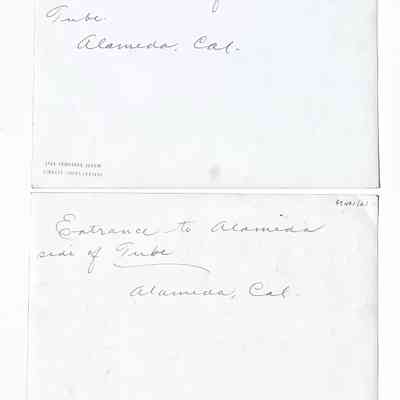 Tube.
Alameda, Cal.
Entrance to Alameda
side of Tube
Alameda, Cal.